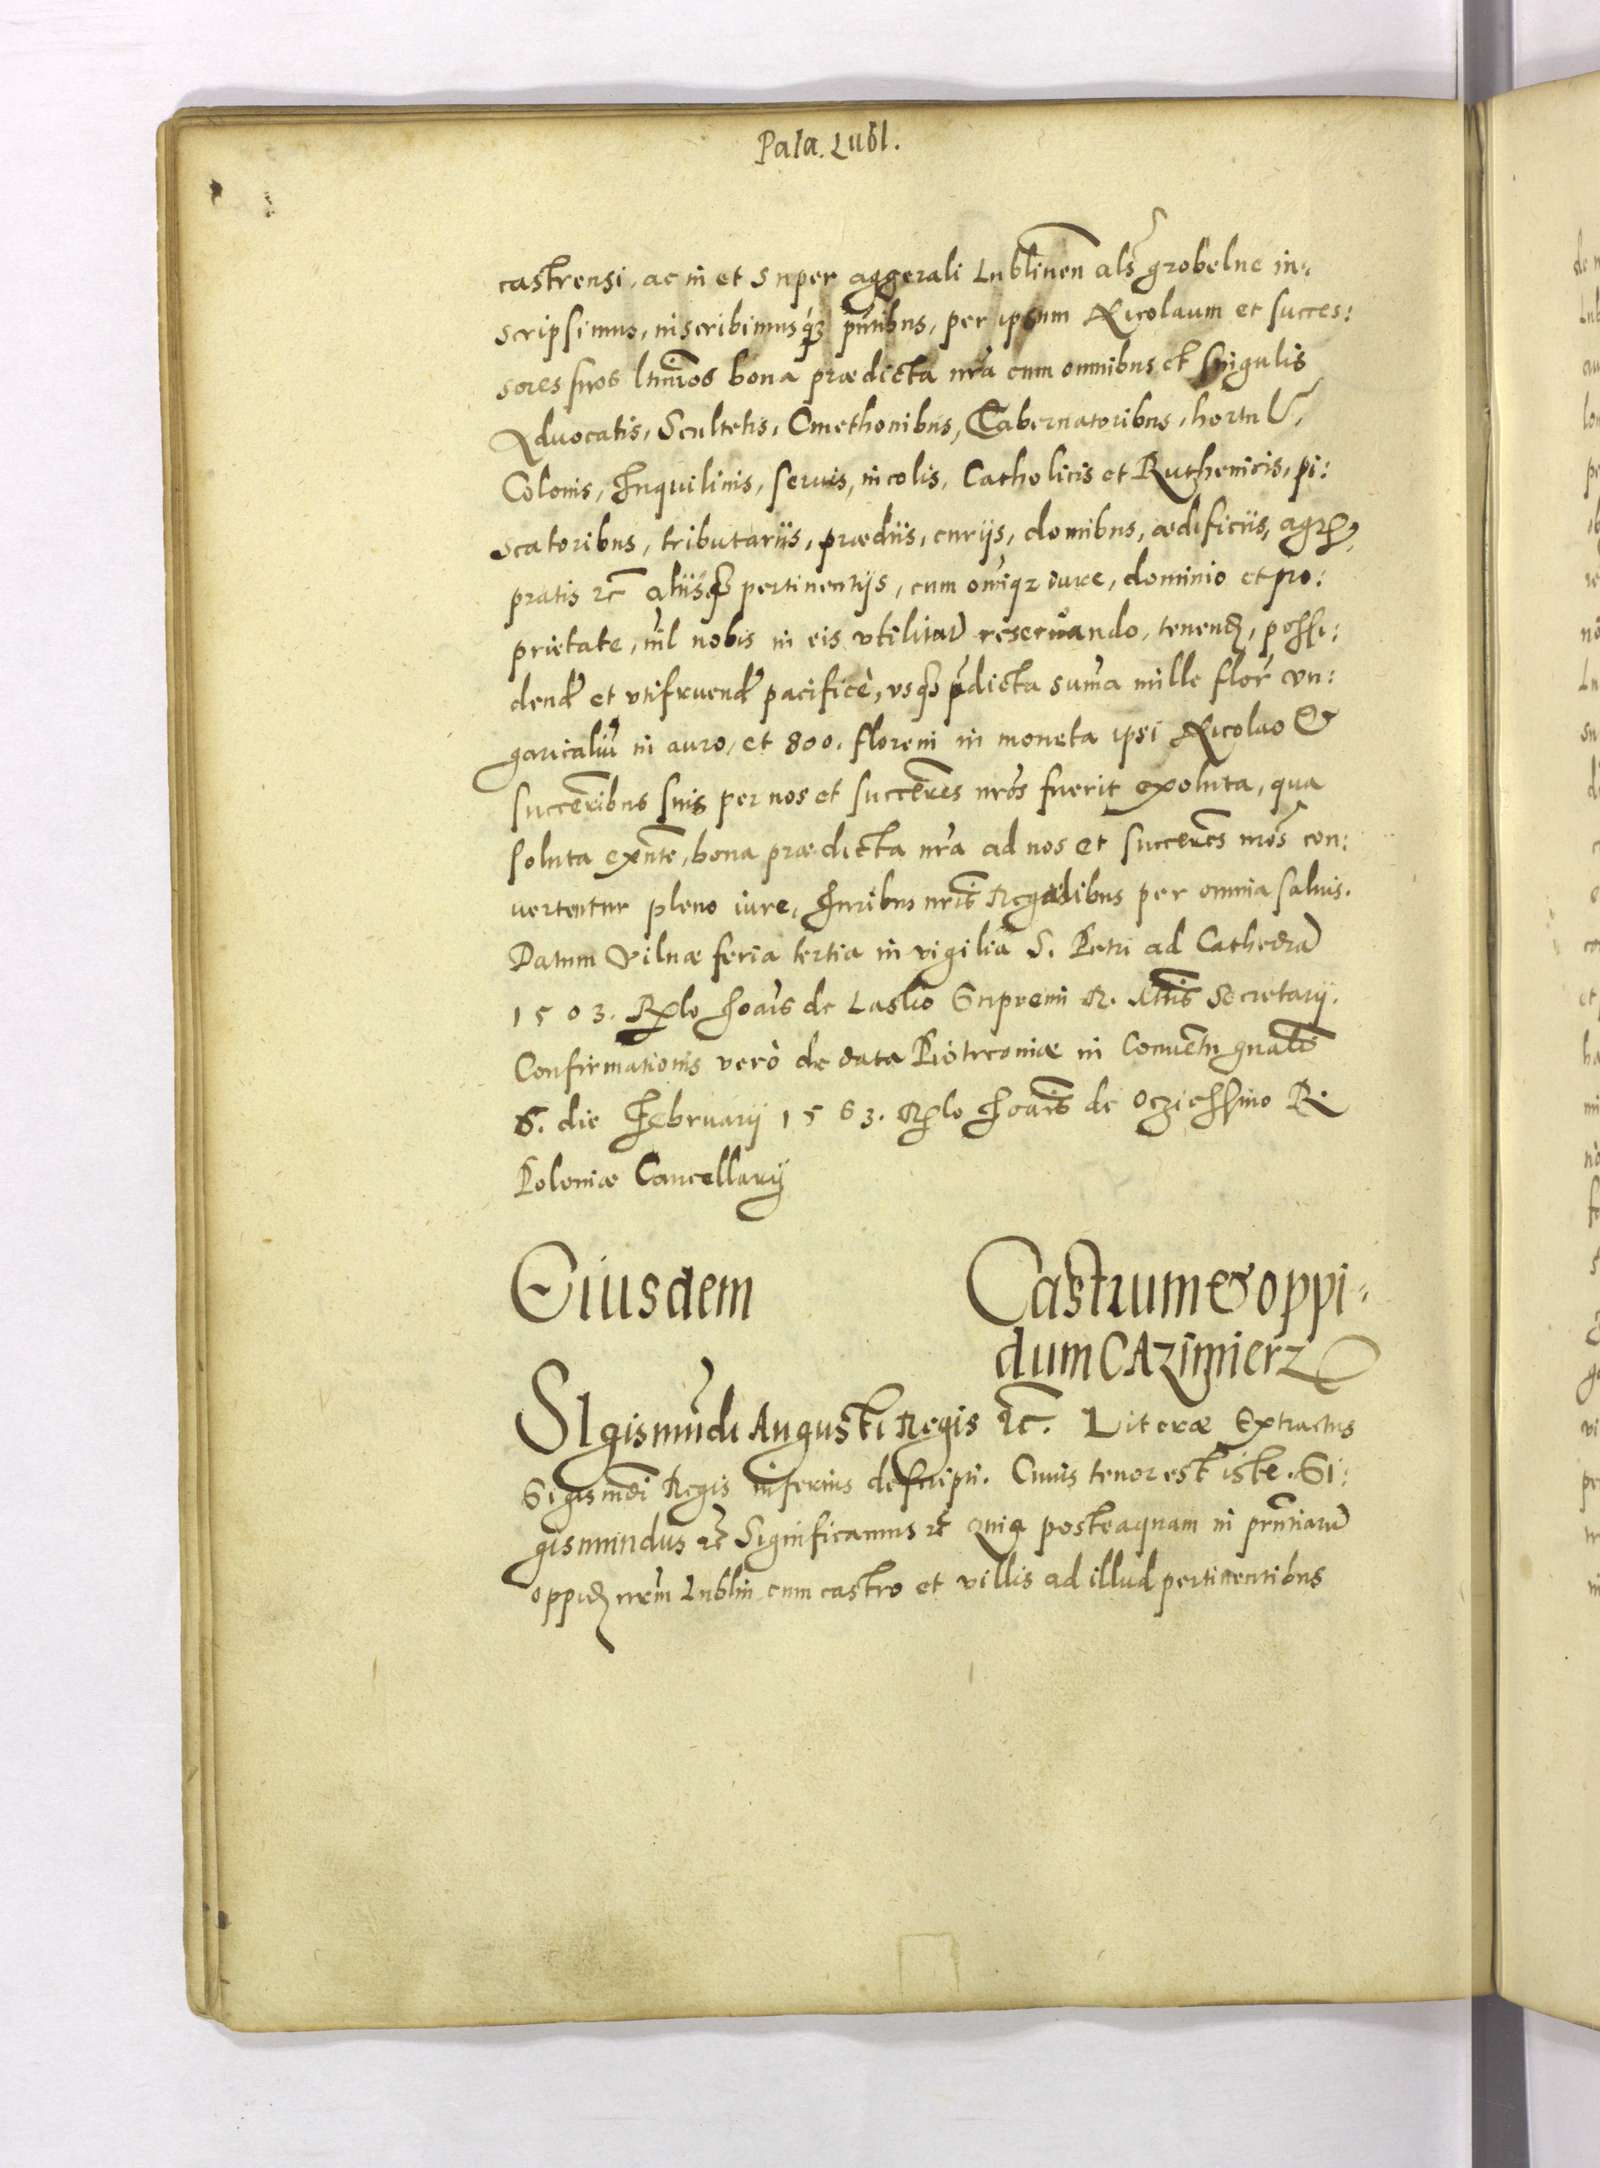 Pala. Lubl.
castrensi, ac in et super aggerali Lublinen̄ als grobelne in:
scripsimus, inscribimusq́ꝫ pn̄tibus, per ipsum Nicolaum et succes:
sores suos lt̄imos bona prædicta nr̄a cum omnibus et singulis
Advocatis, Scultetis, Cmethonibus, Tabernatoribus, hortul.,
Colonis, Inquilinis, seruis, incolis, Catholicis et Ruthenicis, pi:
scatoribus, tributariis, prædiis, curijs, domibus, ædificiis, agrꝝ,
pratis ꝛc̄ aliisqꝫ pertinentijs, cum om̄iqꝫ iure, dominio et pro:
prietate, nīl nobis in eis vtilitatū reservando, tenend, possi:
dend et vtifruend pacificè, vsqꝫ p̄dicta sum̄a mille flor̄ vn:
garicaliū in auro, et 800. floreni in moneta ipsi Nicolao &
succer̄ibus suis per nos et succer̄es nr̄os fuerit exoluta, qua
soluta exn̄te, bona prædicta nr̄a ad nos et succer̄es nr̄os con:
uertentur pleno iure, Iuribus nr̄is Regalibus per omnia saluis.
Datum Vilnæ feria tertia in vigilia S. Petri ad Cathedrā
1503. Rꝑlo Joan̄is de Lasko Supremi R. Mt̄tis Secretarij.
Confirmationis verò de data Piotrconiæ in Conuētu gn̄ali
6. die February 1563. Rꝑlo Joan̄is de Oczieschino R.
Poloniæ Cancellarij
Eiusdem Castrum & oppi:
dum CAzimierz
SIgismūdi Augusti Regis ꝛc̄. Literæ Extractus
Sigismūdi Regis inferius descripti. Cuius tenor est iste. Si:
gismundus ꝛc̄ Significamus ꝛc̄ Quia posteaquam in prn̄tiarū
oppid nr̄um Lublin cum castro et villis ad illud pertinentibus